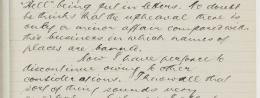 "Hell" being put in letters. No doubt
he thinks that the upheaval there is
only a minor affair compared with
this business in which names of
places are banned.
Now I have perforce to
discontinue owing to other
considerations. I know all that
sort of thing sounds very